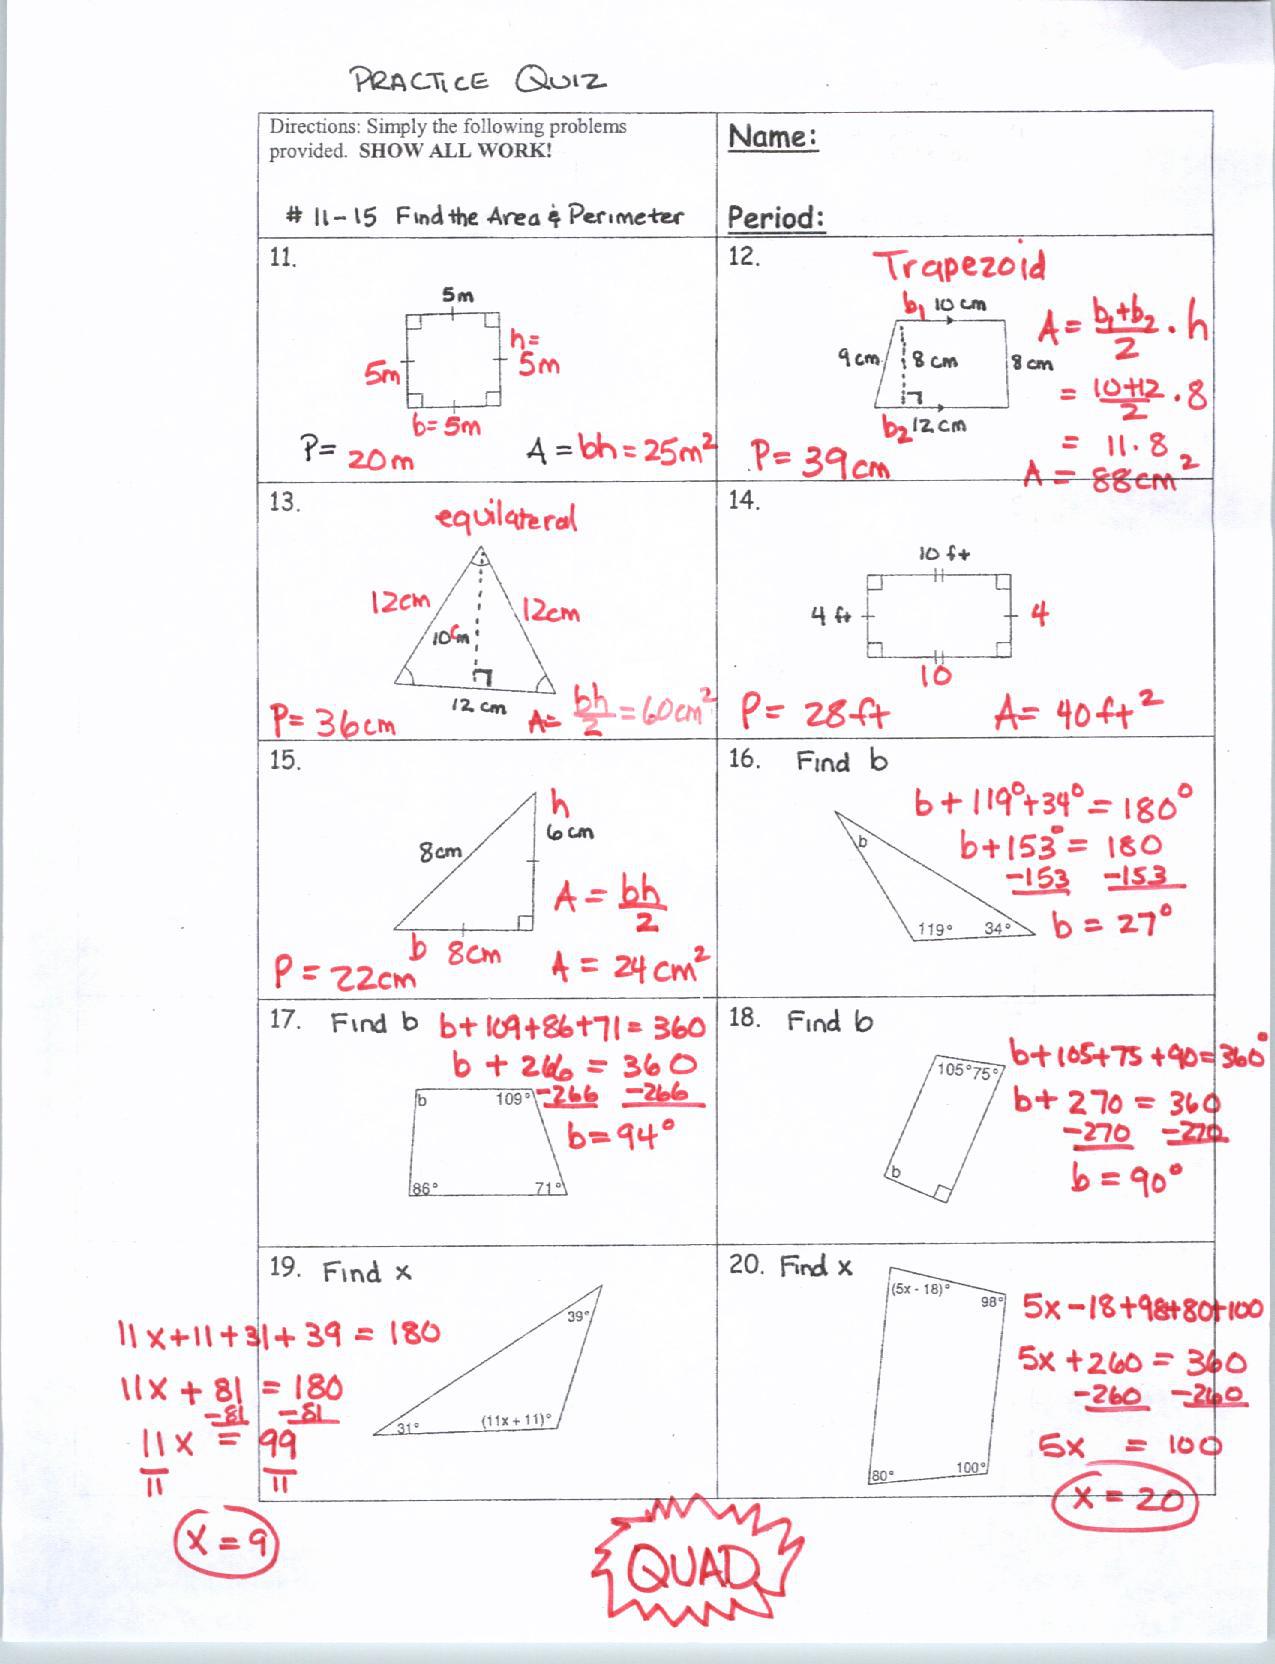 PRACTICE QUIZ
Directions: Simply the following problems
provided. SHOW ALL WORK!
# 11-15 Find the Area & Perimeter
Name:
Period:
11.
5m
5m
h=
5m
b= 5m
P= 20m
A = bh = 25m²
12.
Trapezoid
b₁ 10 cm
9 cm
8 cm
8 cm
b₂ 12 cm
A = b₁+b₂/2 · h
= 10+12/2 · 8
= 11 · 8
A = 88cm²
P= 39cm
13.
equilateral
12cm
12cm
10cm
12 cm
P= 36cm
A= bh/2 = 60cm²
14.
10 ft
4 ft
4
10
P= 28ft
A= 40ft²
15.
h
6cm
8cm
b 8cm
A = bh/2
P= 22cm
A = 24cm²
16. Find b
b+119°+34°=180°
b+153°= 180
-153 -153
b = 27°
b
119° 34°
17. Find b
b+109+86+71= 360
b + 266 = 360
-266 -266
b=94°
b 109°
86° 71°
18. Find b
b+105+75+90=360°
b+ 270 = 360
-270 -270
b = 90°
105° 75°
b
19. Find x
39°
31° (11x + 11)°
11x+11+31+39 = 180
11x + 81 = 180
-81 -81
11x = 99
11 11
x = 9
20. Find x
(5x - 18)° 98°
80° 100°
5x-18+98+80+100
5x+260 = 360
-260 -260
5x = 100
x = 20
QUAD